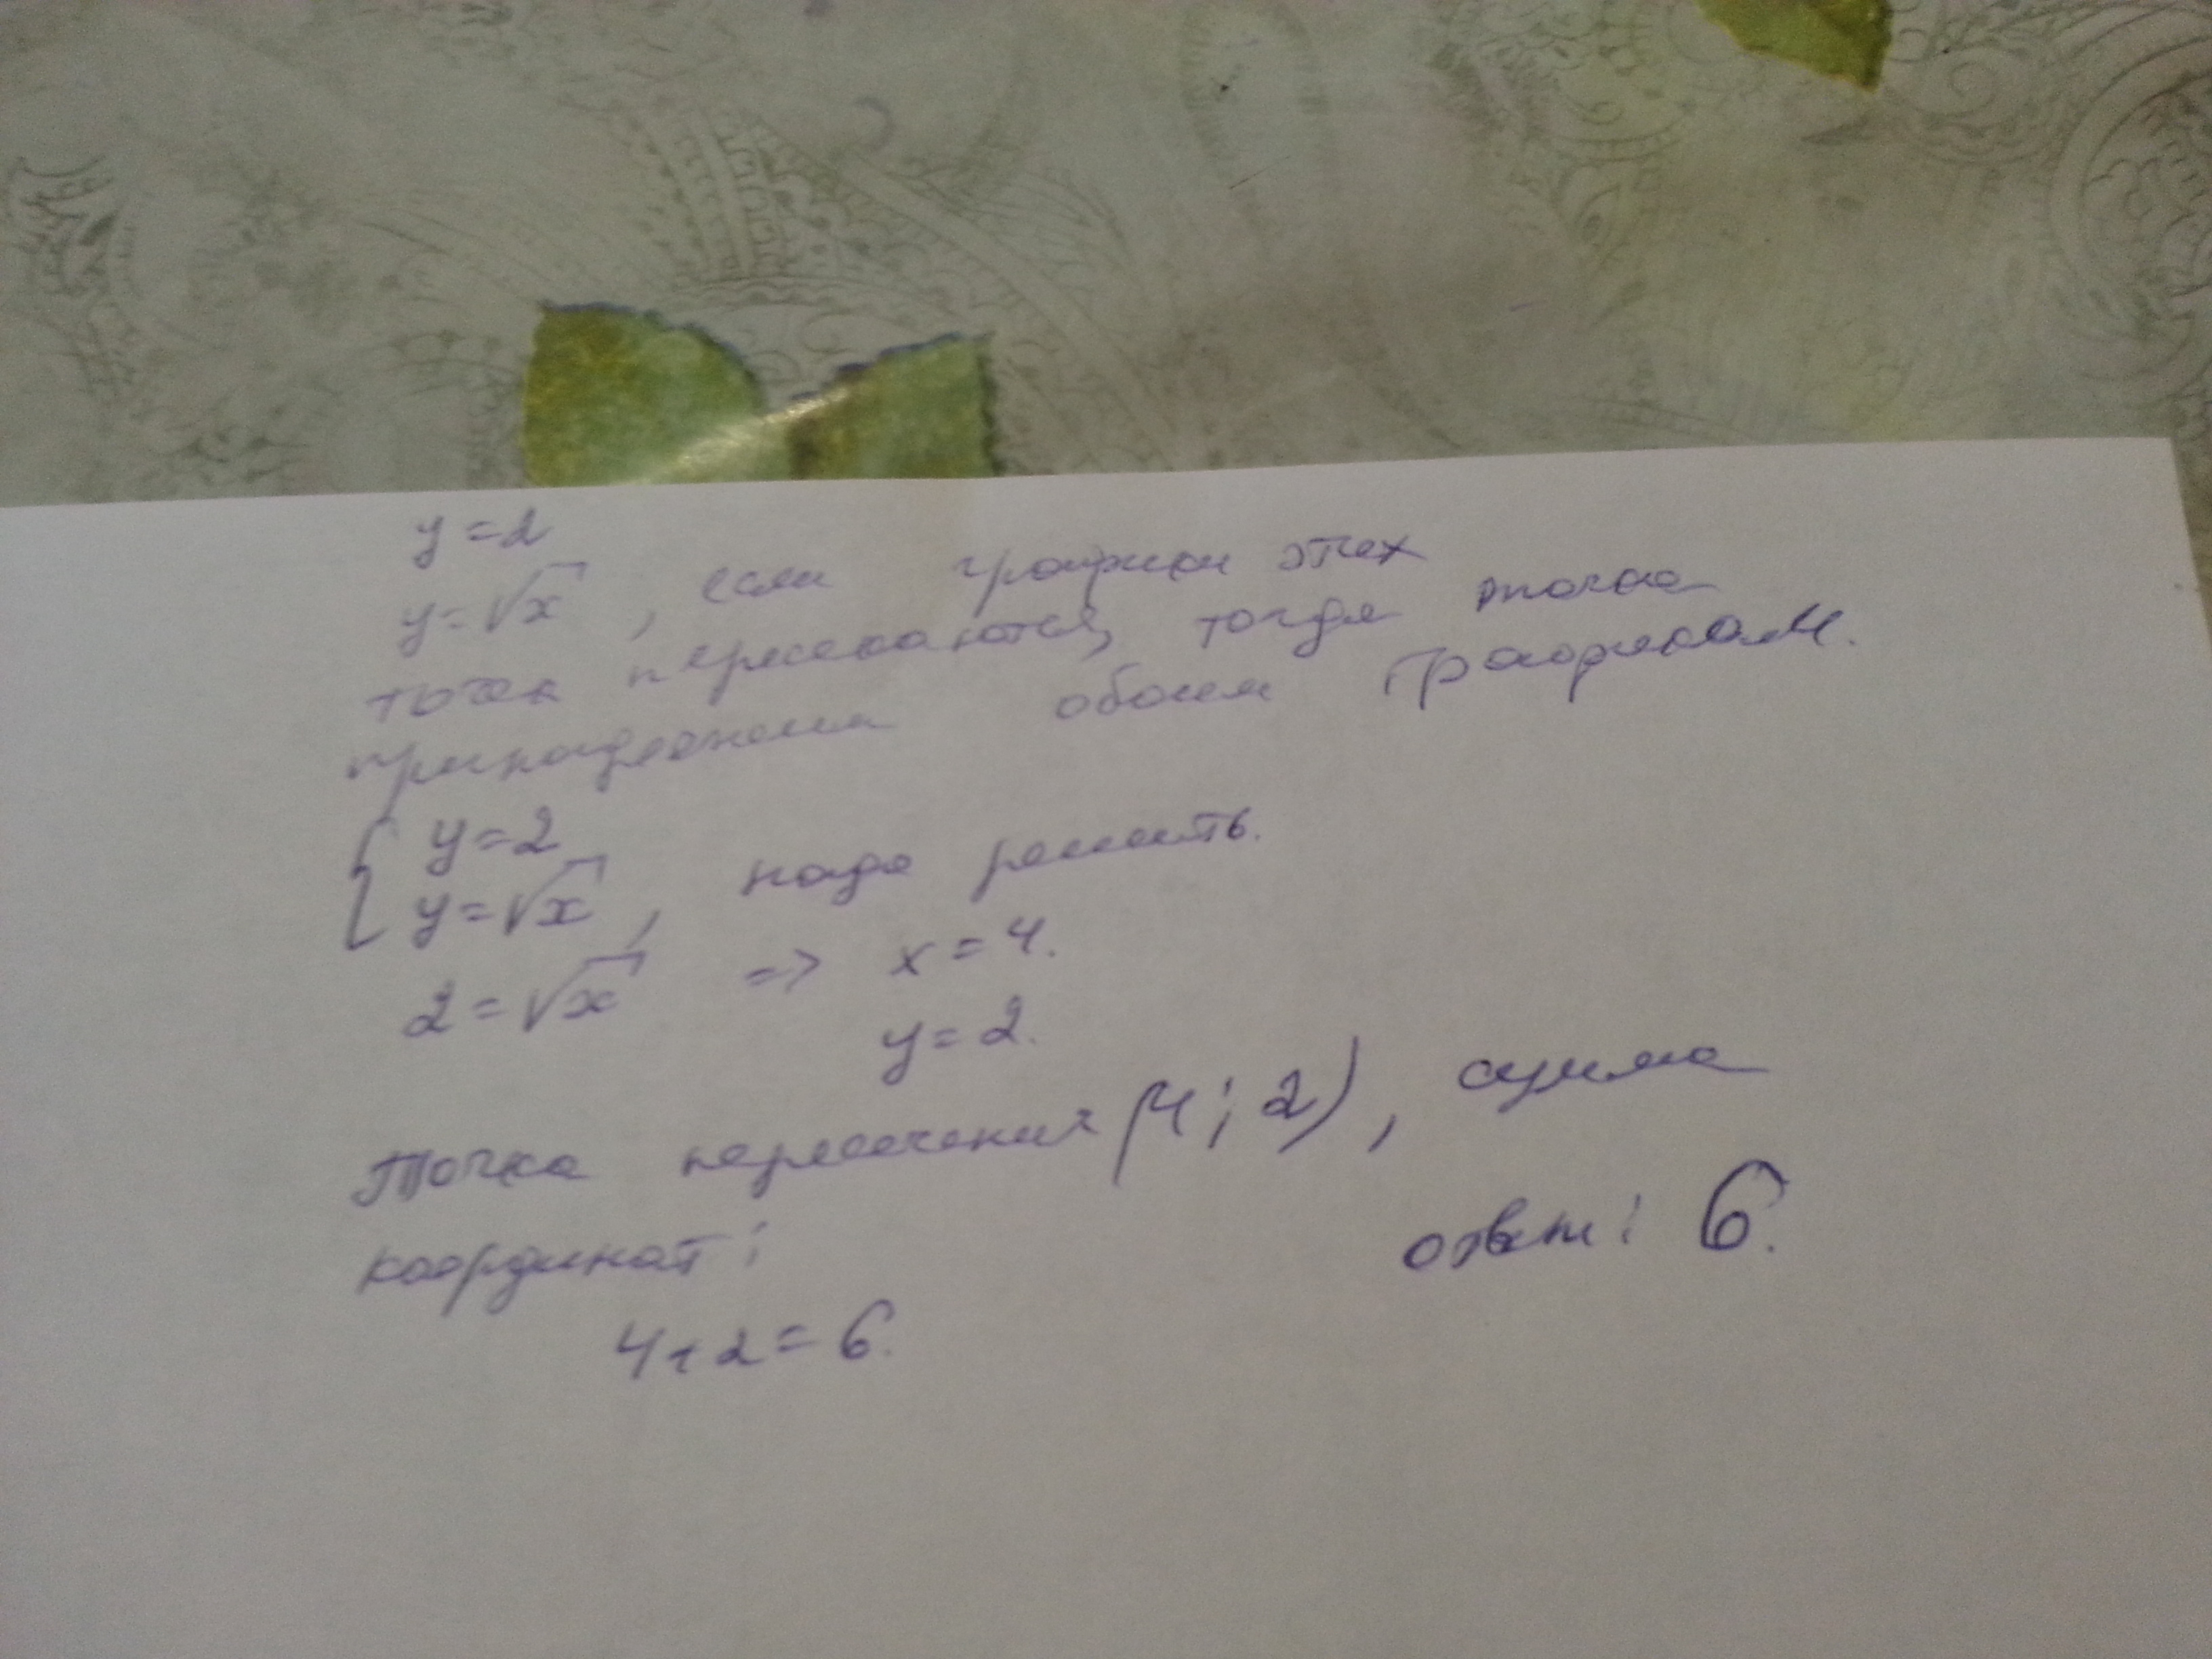 y=2
y=√x, если графики этих
точек пересекаются, тогда точка
принадлежит обоим графикам.
{ y=2
y=√x, надо решить.
2=√x => x=4.
y=2.
Точка пересечения (4;2), сумма
координат:
ответ: 6.
4+2=6.